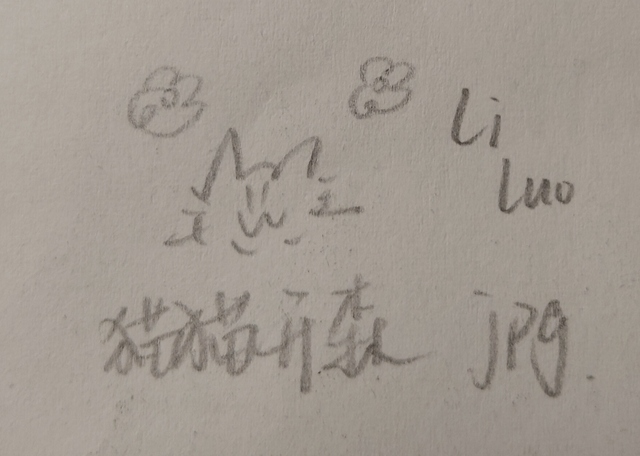 Li
Luo
猫猫开森 jpg.